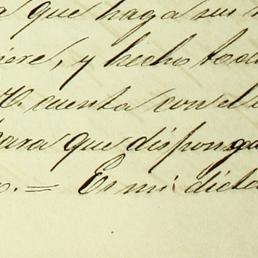 que haga su
y hecho todo
cuenta con el
para que disponga
= En mi dicta